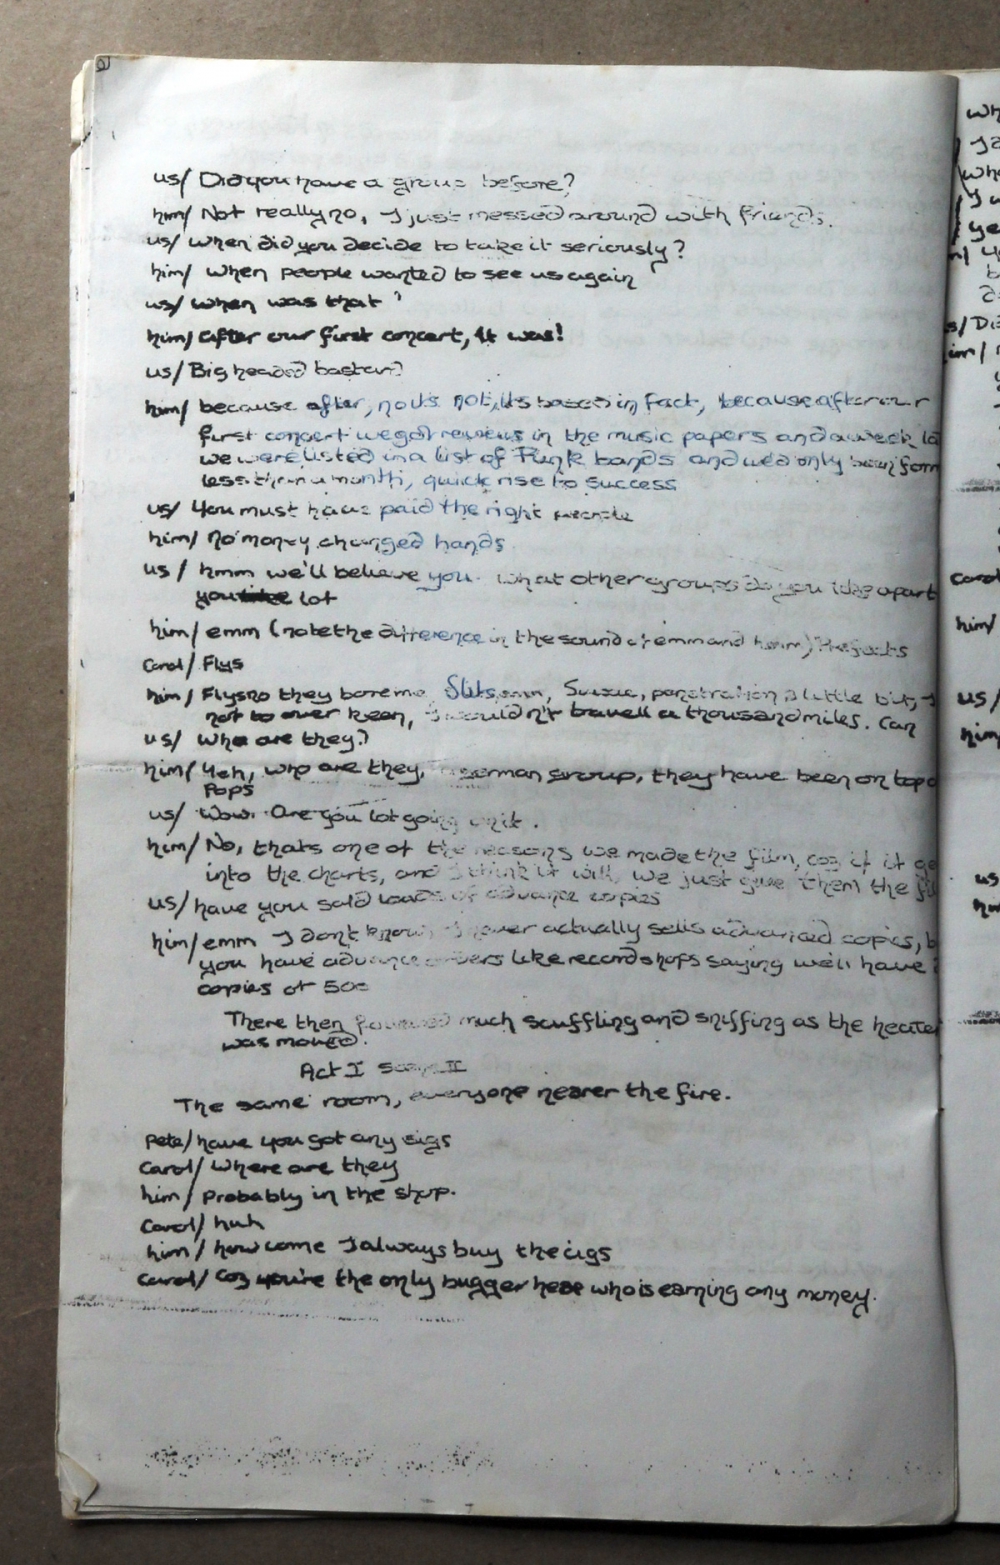 us/ Did you have a group before?
him/ Not really no, I just messed around with friends.
us/ when did you decide to take it seriously?
him/ when people wanted to see us again
us/ when was that?
him/ after our first concert, it was!
us/ Big headed bastard
him/ because after, no it's not, its based in fact, because after our
first concert we got reviews in the music papers and a week
we were listed in a list of Punk bands and we'd only been form
less than a month, quick rise to success
us/ You must have paid the right people
him/ no money changed hands
us/ hmm we'll believe you. what other groups do you like apart
you lot
him/ emm (note the difference in the sound of emm and hmm) Prefects
Carol/ Flys
him/ Flys no they bore me Slits, emm, Siouxie, penetration a little bit, I
not to over keen, I wouldn't travell a thousand miles. Can
us/ who are they?
him/ Yeh, who are they, german group, they have been on top o
Pops
us/ Wow. Are you lot going on it.
him/ No, thats one of the reasons we made the film, coz if it ge
into the charts, and I think it will, we just give them the fil
us/ have you sold loads of advance copies
him/ emm I don't know I never actually sells advanced copies, b
you have advance orders like record shops saying we'll have
copies of 500
There then followed much scuffling and sniffing as the heater
was moved.
Act I scene II
The same room, everyone nearer the fire.
Pete/ have you got any cigs
Carol/ Where are they
him/ Probably in the shop.
Carol/ huh
him/ how come I always buy the cigs
Carol/ Coz you're the only bugger here who is earning any money.